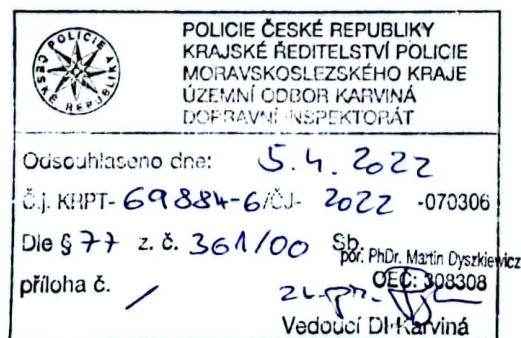 POLICIE ČESKÉ REPUBLIKY
KRAJSKÉ ŘEDITELSTVÍ POLICIE
MORAVSKOSLEZSKÉHO KRAJE
ÚZEMNÍ ODBOR KARVINÁ
DOPRAVNÍ INSPEKTORÁT
POLICIE ČESKÉ REPUBLIKY
Odsouhlaseno dne: 5.4.2022
Č.j. KRPT- 69884-6/ČJ- 2022 -070306
Dle § 77 z. č. 361/00 Sb.
por. PhDr. Martin Dyszkiewicz
OEČ: 308308
příloha č. /
Vedoucí DI Karviná